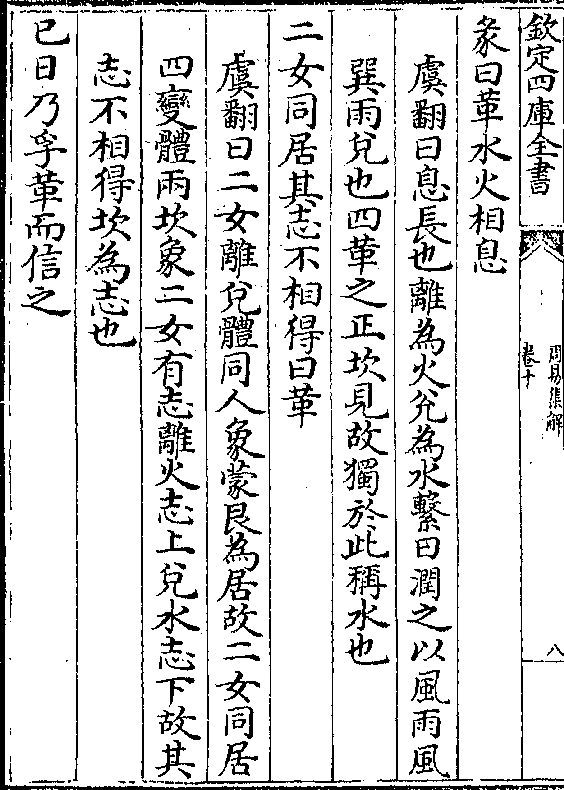 欽定四庫全書
周易集解
卷十
八
彖曰革水火相息
虞翻曰息長也離為火兊為水繫曰潤之以風雨風
巽雨兊也四革之正坎見故獨於此稱水也
二女同居其志不相得曰革
虞翻曰二女離兊體同人象蒙艮為居故二女同居
四變體兩坎象二女有志離火志上兊水志下故其
志不相得坎為志也
已日乃孚革而信之